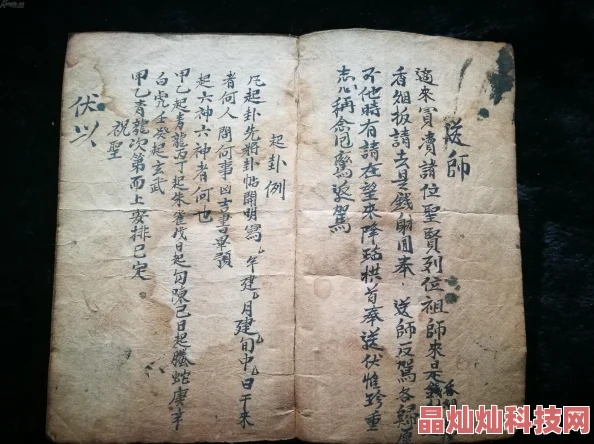 送師
適來冒瀆諸位聖賢列位祖師來是
香烟拔請去是錢財圓奉送師反駕各歸
不他時有請在望來降臨拱首奉送伏惟珍重
志心稱念回鸞返駕
起卦例
凡起卦先將卦帖開明寫年建月建旬中日干來
者何人問何事凶吉
起六神六神者何也
甲乙起青龍丙丁起朱雀戊日起勾陳己日起螣蛇庚辛
白虎壬癸起玄武
甲乙青龍次第而上安排已定
祝聖
伏以
晶灿灿科技网